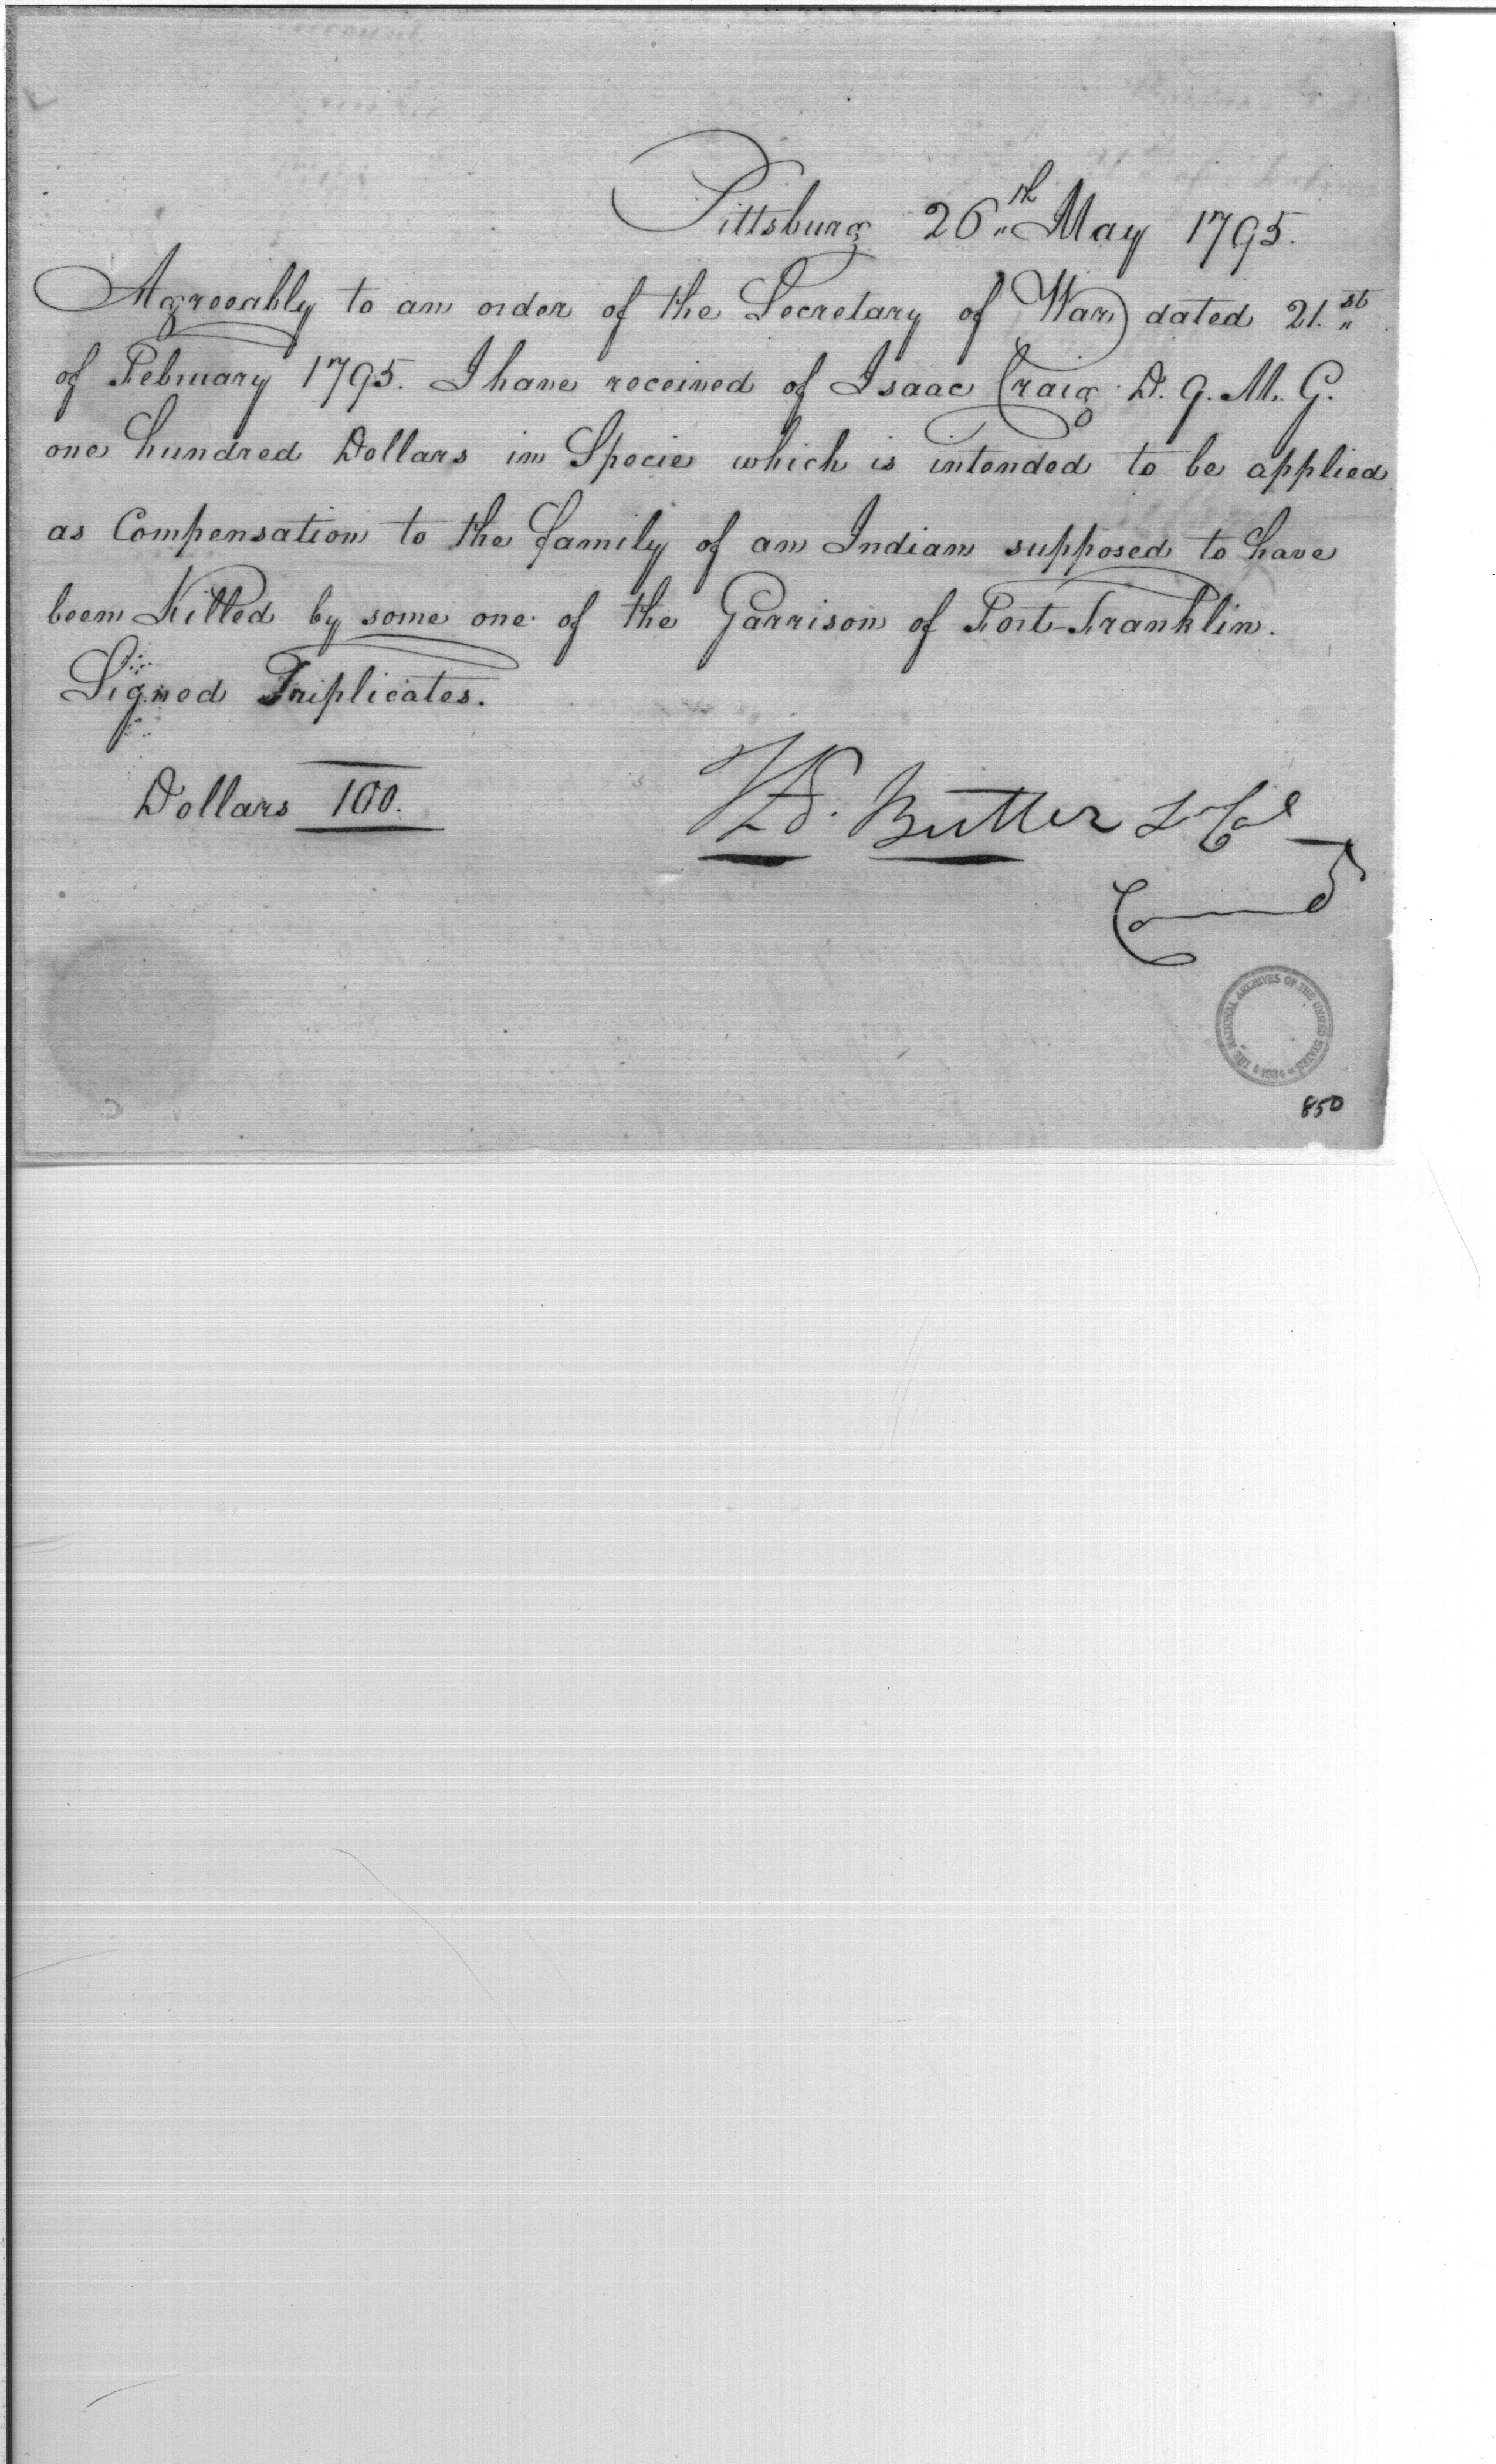 Pittsburg 26th May 1795.
Agreeably to an order of the Secretary of War dated 21.st
of February 1795. I have received of Isaac Craig D. Q. M. G.
one hundred Dollars in Specie which is intended to be applied
as Compensation to the family of an Indian supposed to have
been Killed by some one of the Garrison of Fort-Franklin.
Signed Triplicates.
Dollars 100.
Butler Lt Col
Comd
THE NATIONAL ARCHIVES OF THE UNITED STATES
1934
850